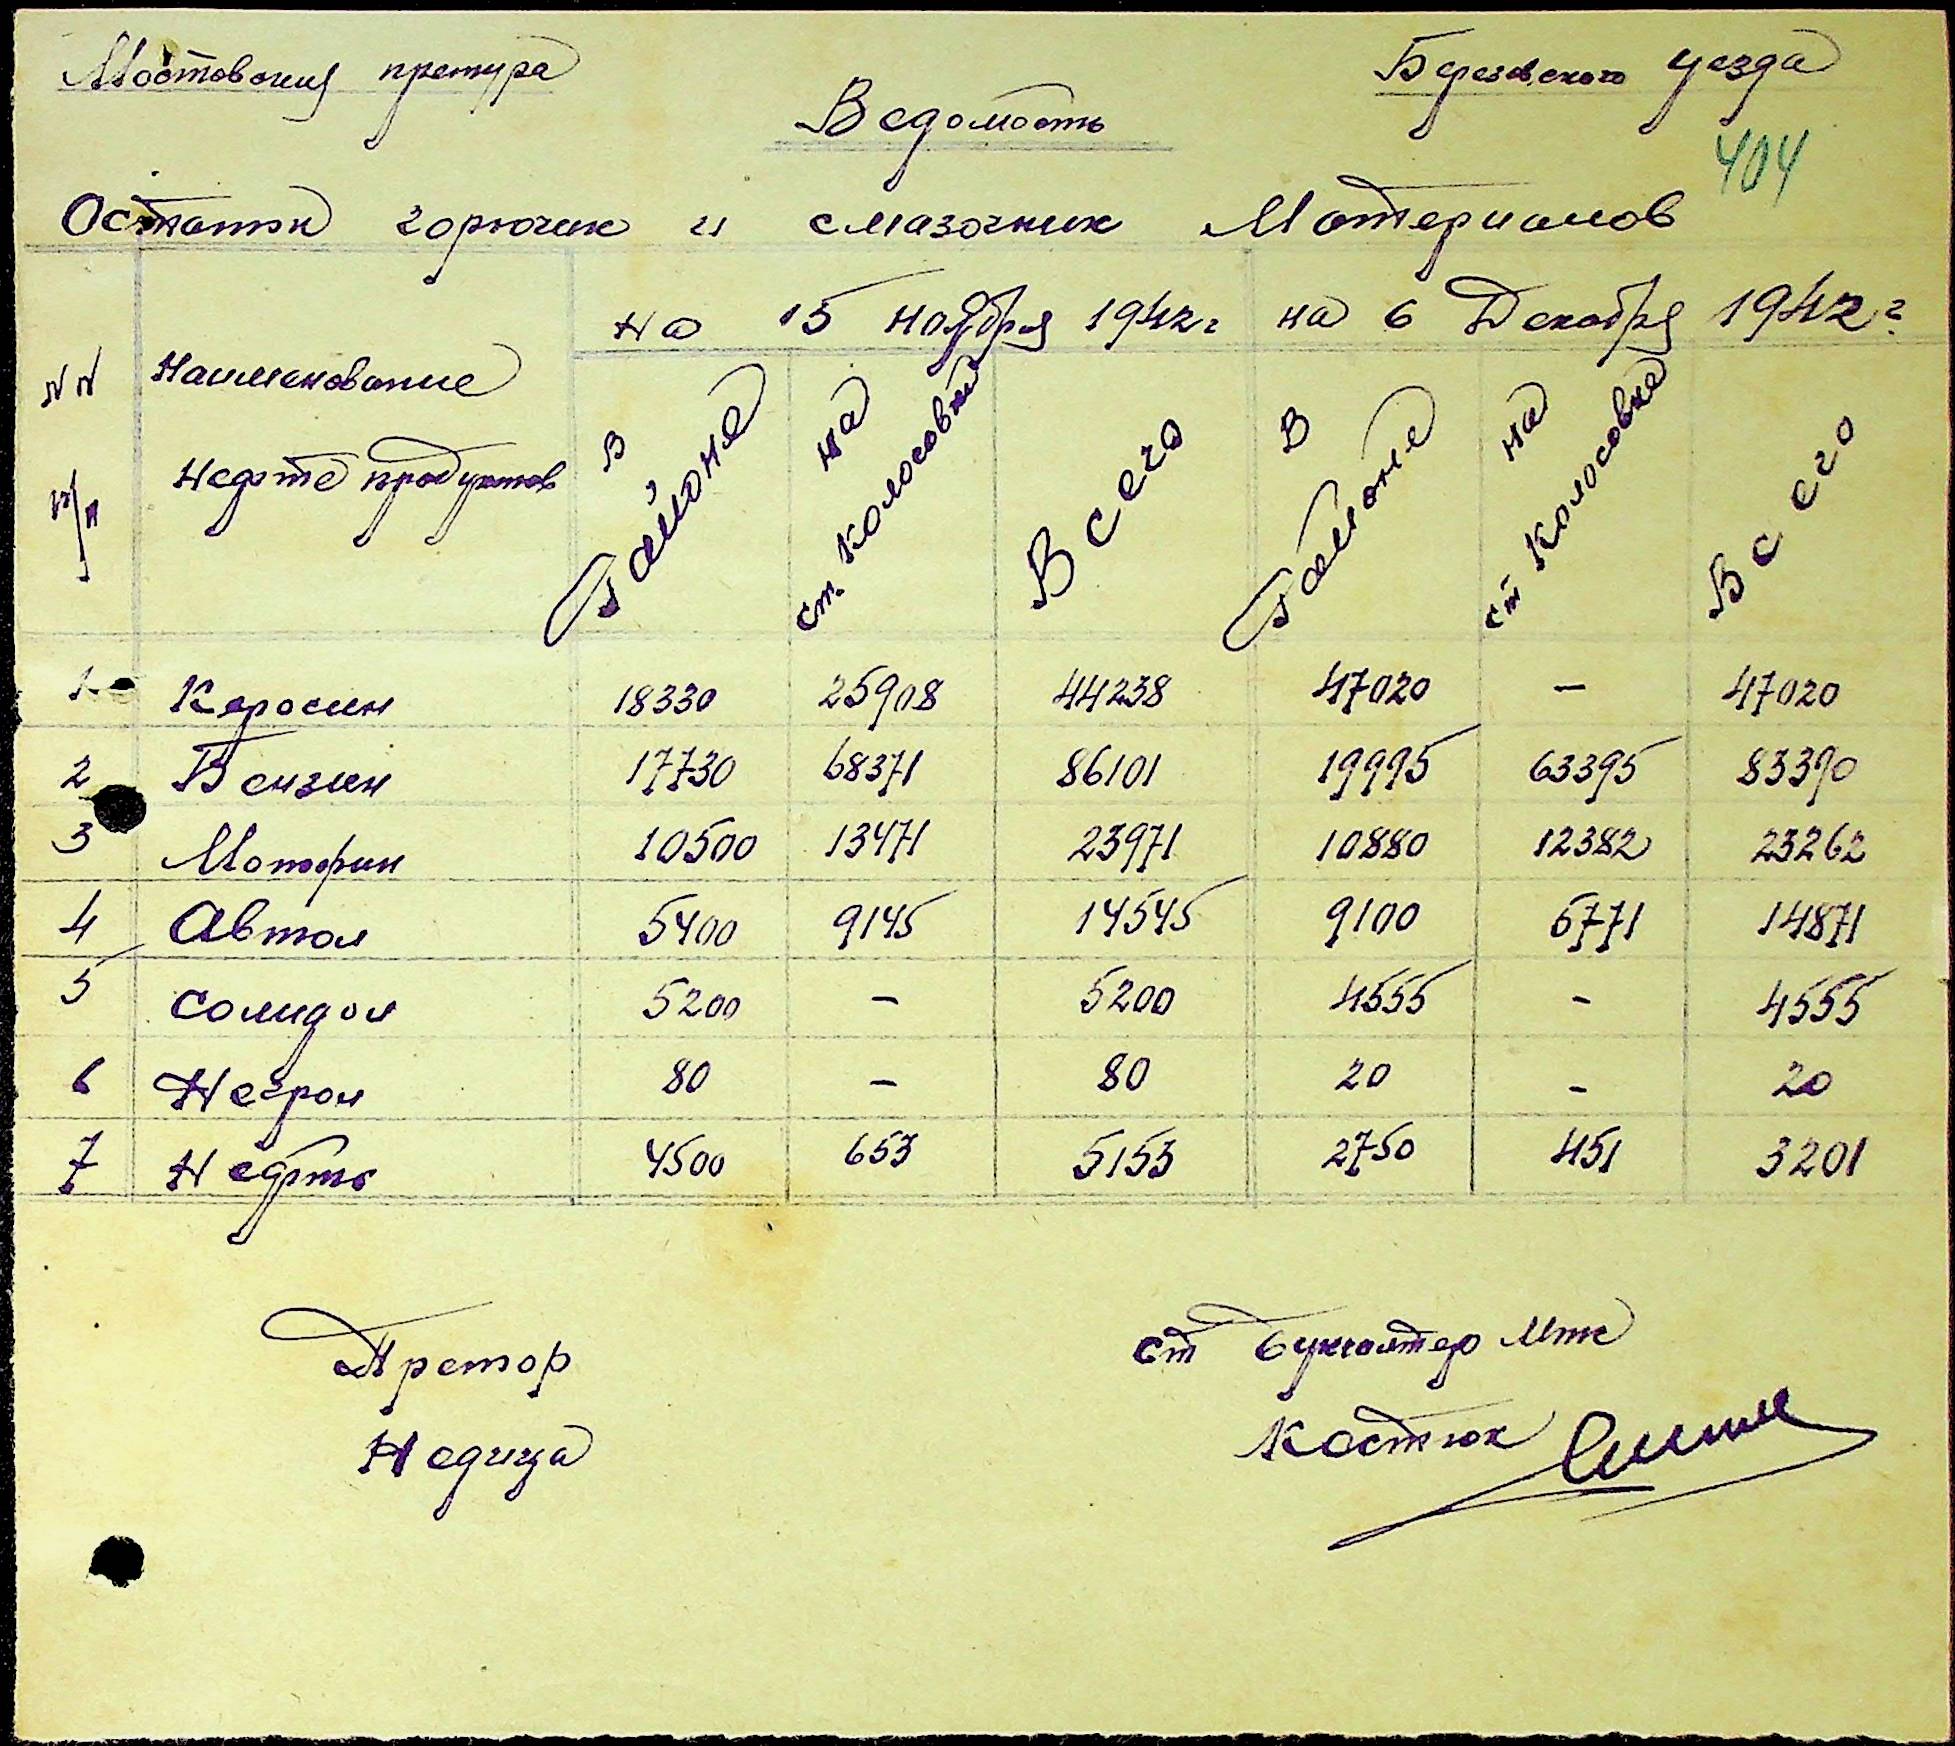 Мостовския претура
Березовского уезда
Ведомость
404
Остатки горючих и смазочних Материалов
№№ п/п
Наименование Нефте продуктов
на 15 ноября 1942 г
на 6 Декабря 1942 г
в Районе
на ст. Колосовка
Всего
в Районе
на ст Колосовка
Всего
1 Керосин 18330 25908 44238 47020 — 47020
2 Бензин 17730 68371 86101 19995 63395 83390
3 Моторин 10500 13471 23971 10880 12382 23262
4 Автол 5400 9145 14545 9100 5771 14871
5 Солидол 5200 — 5200 4555 — 4555
6 Негрол 80 — 80 20 — 20
7 Нефть 4500 653 5153 2750 451 3201
Претор
ст бухгалтер Мтс
Недица
Костюк